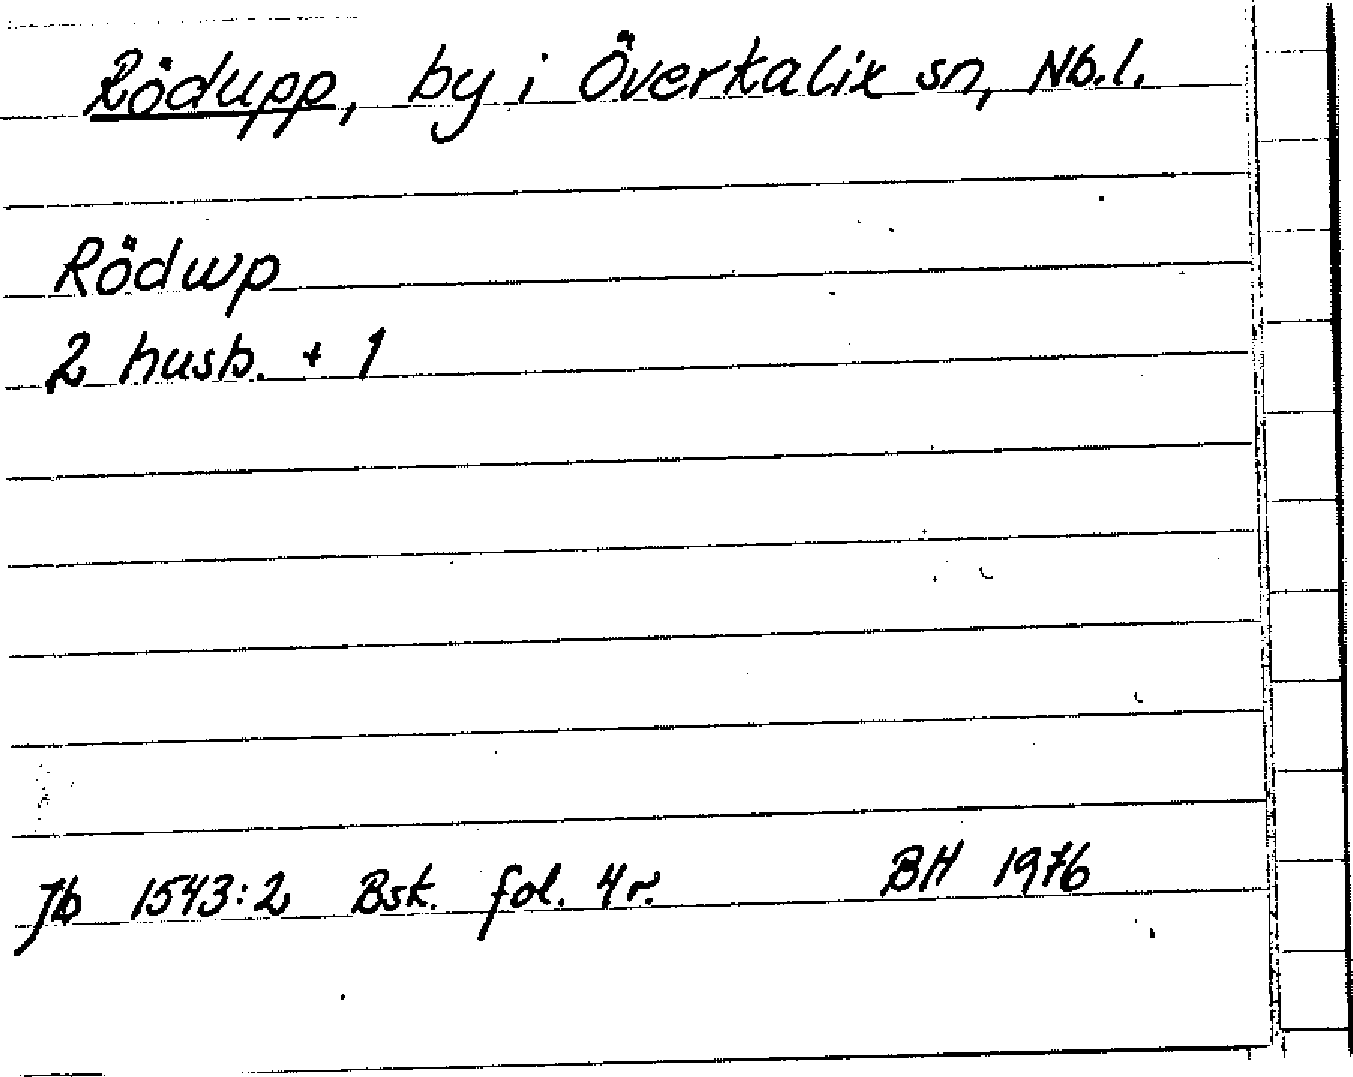 Rödupp, by i Överkalix sn, Nb.l.
Rödwp
2 husb. + 1
Jb 1543:2 Bsk. fol. 4r. BH 1976